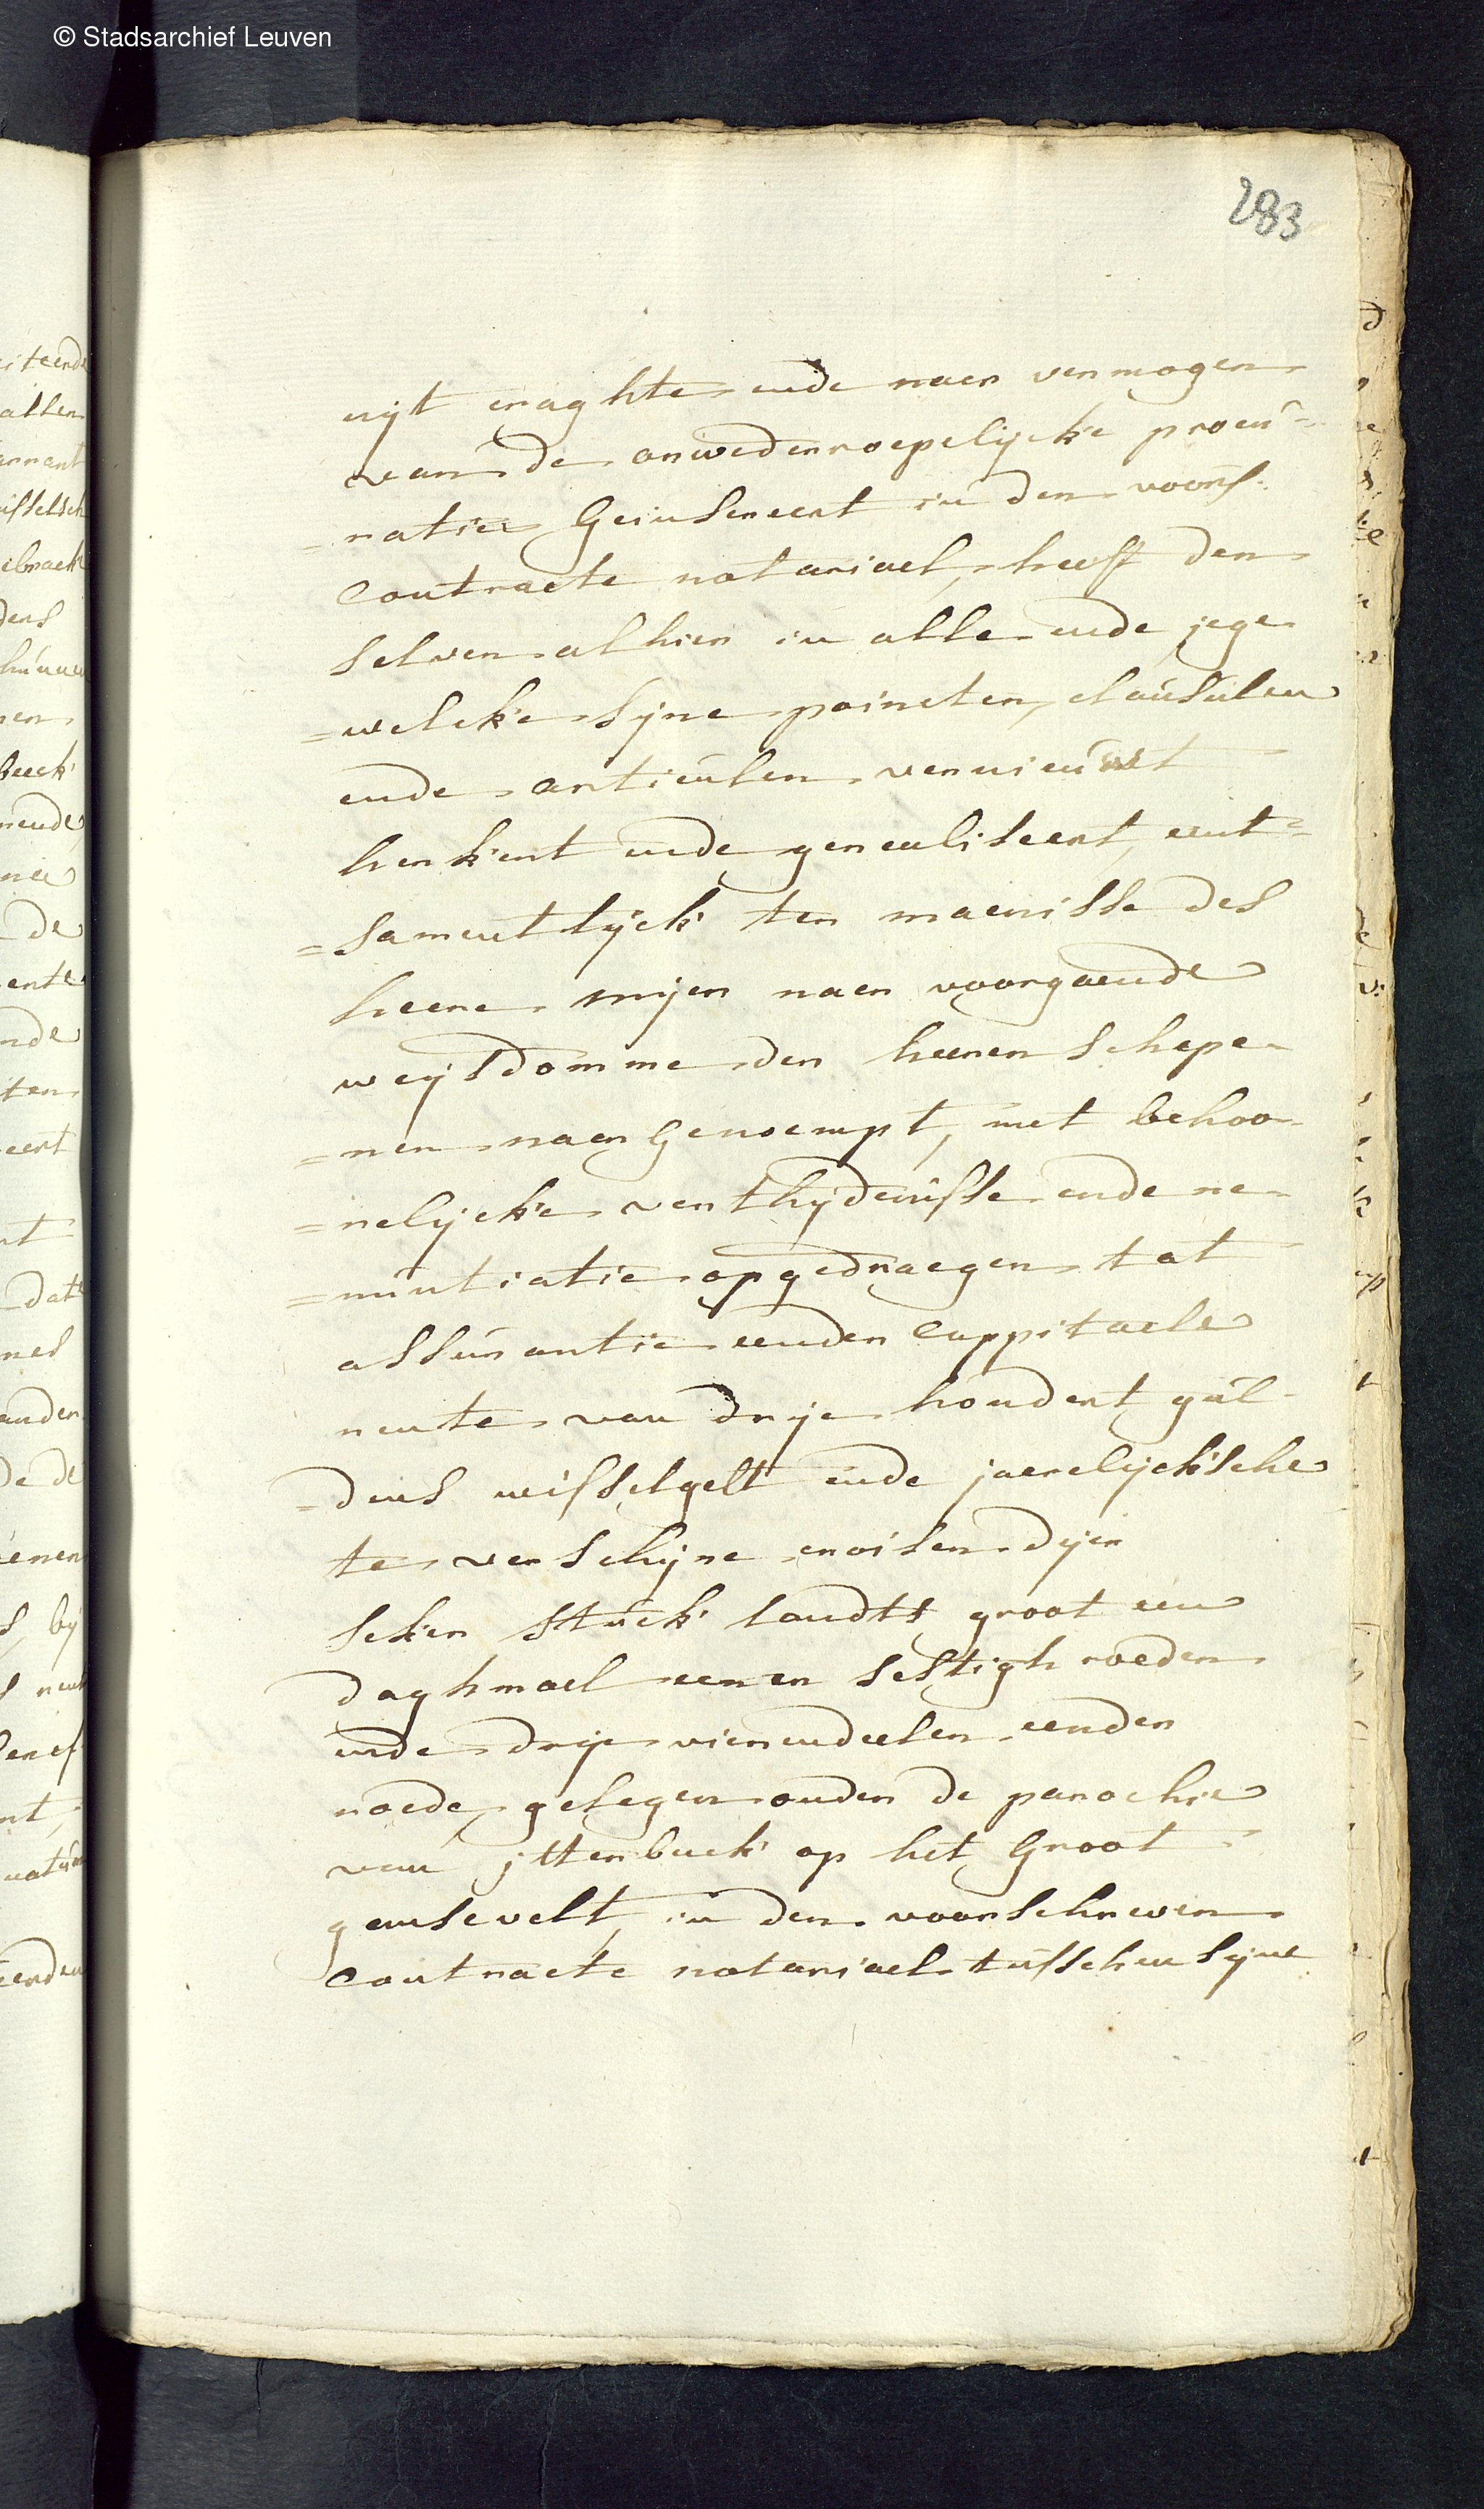 © Stadsarchief Leuven
283
uijt craghte ende naer vermogen
van de onwederroepelijcke procu=
=ratie geinsereert in den voors.
contracte notariael, heeft den
selven alhier in alle ende jege
=welcke syne poincten, clausulen
ende articulen vernieuwt
herkent ende gerealiseert, ent=
=samentlijck ter maenisse des
heere meijer naer voorgaende
weijsdomme der heeren schepe
=nen naergenoempt, met behoo
=relijcke verthijdenisse ende re
=nuntiatie opgedraegen tot
assurantie eender cappitaele
rente van drije hondert gul
=dens wisselgelt ende jaerelijcksche
te verschijne croisen dijer
seker stuck landts groot een
daghmael eenen sestigh roeden
ende drije vierendeelen eender
roede, gelegen onder de parochie
van jtterbeek op het groot
gansevelt, in den voorschreven
contracte notariael tusschen syne